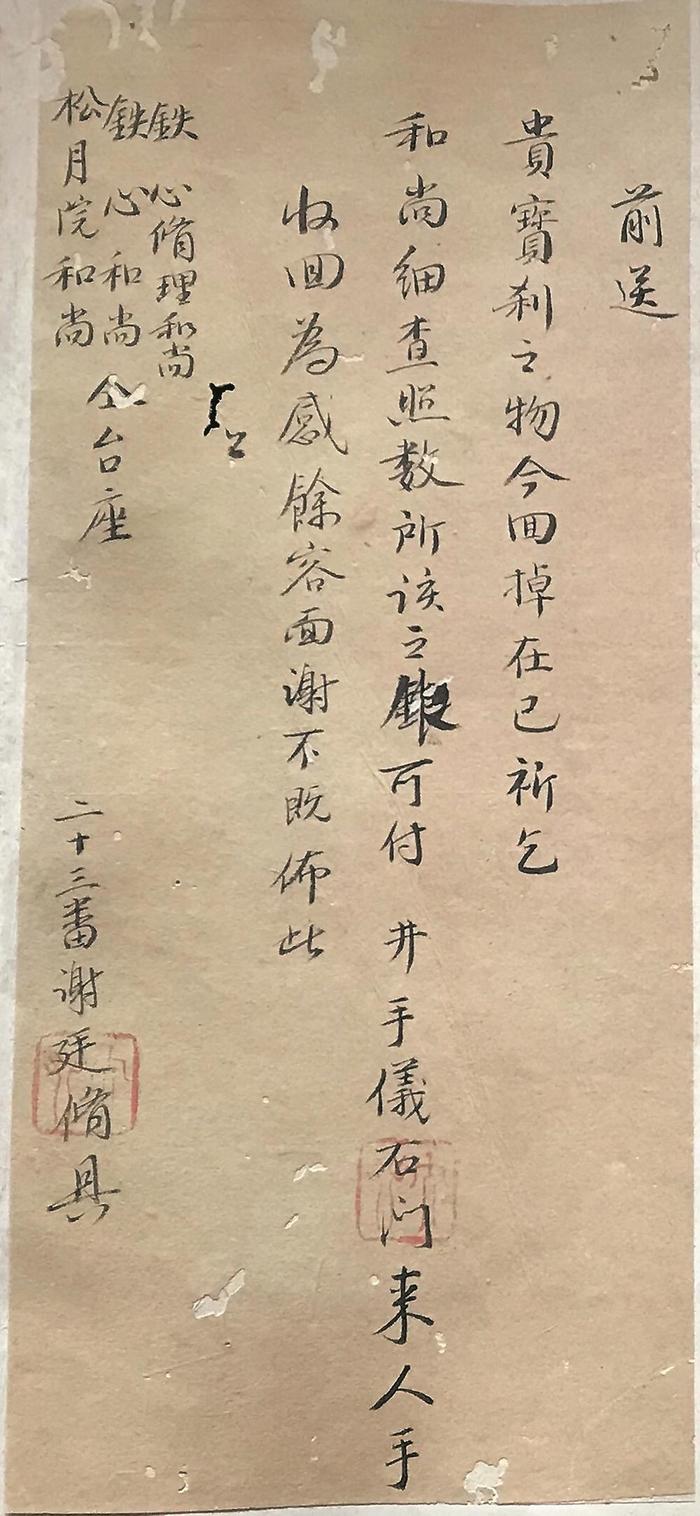 前送
貴寶刹之物今回掉在已祈乞
和尚細查照數所該之銀可付 井手儀右門来人手
收回為感餘容面謝不既佈此
上
鉄心脩理和尚
鉄心和尚 仝台座
松月院和尚
二十三番謝廷脩具